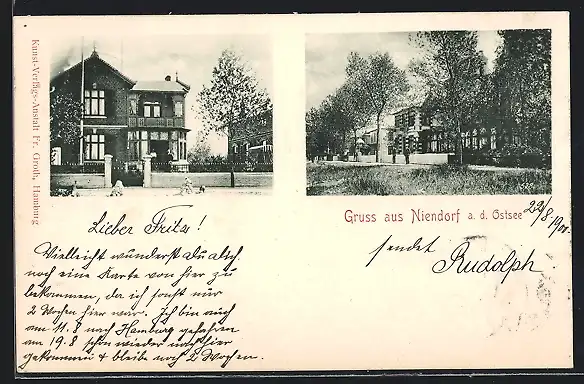 Kunst-Verlags-Anstalt Fr. Groth, Hamburg
Gruss aus Niendorf a. d. Ostsee
22/8 1901.
sendet
Rudolph.
Lieber Fritz!
Vielleicht wunderst du dich
noch eine Karte von hier zu
bekommen, da ich sonst nur
2 Wochen hier war. Ich bin auch
am 11.8 nach Hamburg gefahren
am 19.8 schon wieder nach hier
gekommen & bleibe noch 2 Wochen.